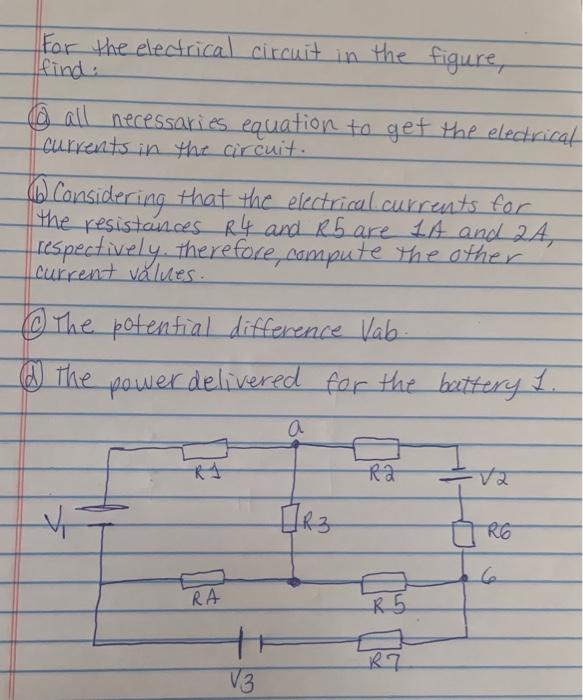 For the electrical circuit in the figure,
find:
(a) all necessaries equation to get the electrical
currents in the circuit.
(b) Considering that the electrical currents for
the resistances R4 and R5 are 1A and 2A,
respectively. therefore, compute the other
current values.
(c) The potential difference Vab.
(d) The power delivered for the battery 1.
a
R1
R2
V2
V1
R3
R6
R4
R5
b
R7
V3